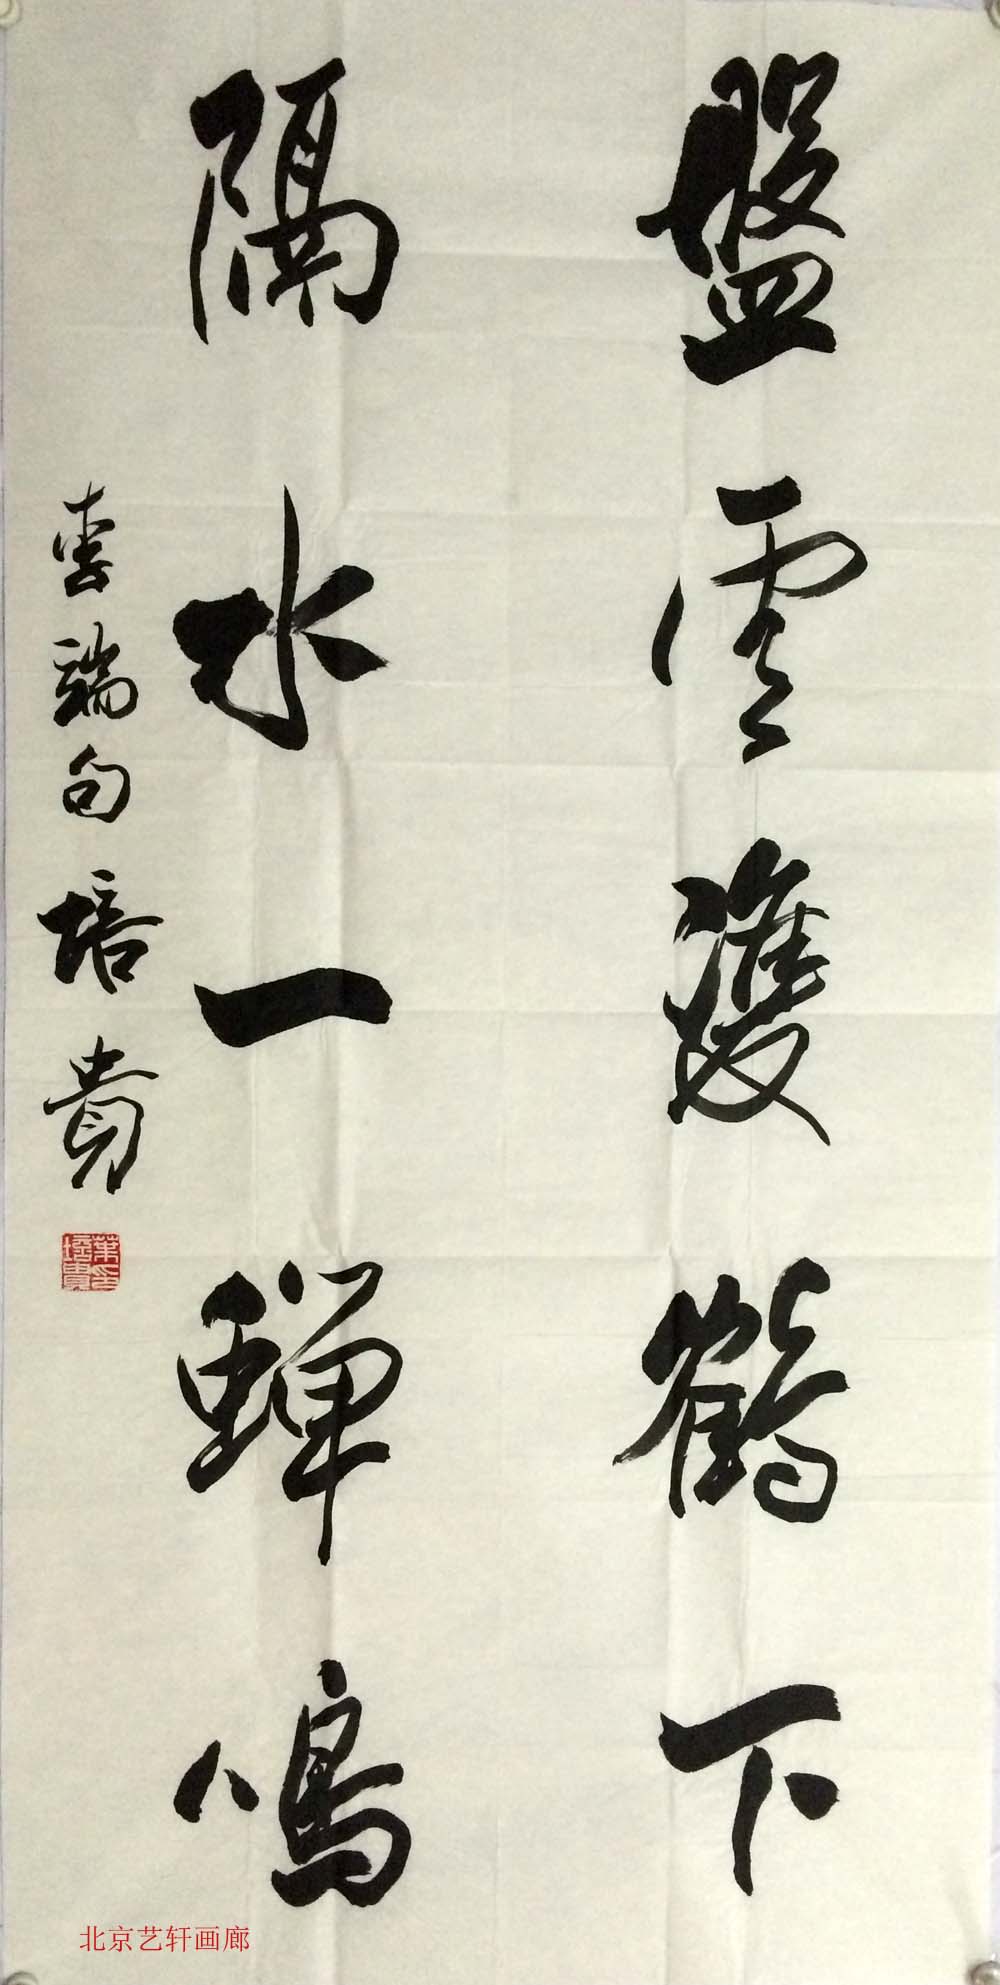 盤雲雙鶴下
隔水一蟬鳴
李端句 培貴
葉培貴印
北京艺轩画廊